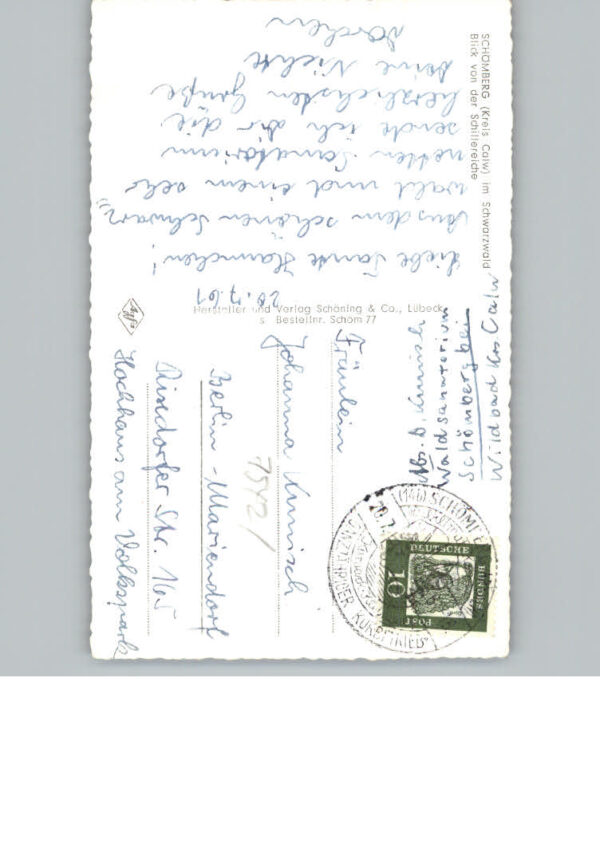 SCHÖMBERG (Kreis Calw) im Schwarzwald
Blick von der Schillereiche
20.7.61
Liebe Tante Hannchen!
Aus dem schönen Schwarz-
wald und einem sehr
netten Sanatorium
sende ich dir die
herzlichsten Grüße
Deine Nichte
Hersteller und Verlag Schöning & Co., Lübeck
s Bestellnr. Schöm 77
Agfa
Abs. D. Kunisch
Waldsanatorium
Schömberg bei
Wildbad Krs Calw
(14b) SCHÖMBERG
20.7.
KURBETRIEB
DEUTSCHE
BUNDES
POST
10
Fräulein
Johanna Kunisch
7542/
Berlin-Mariendorf
Rixdorfer Str. 165
Hochhaus am Volkspark